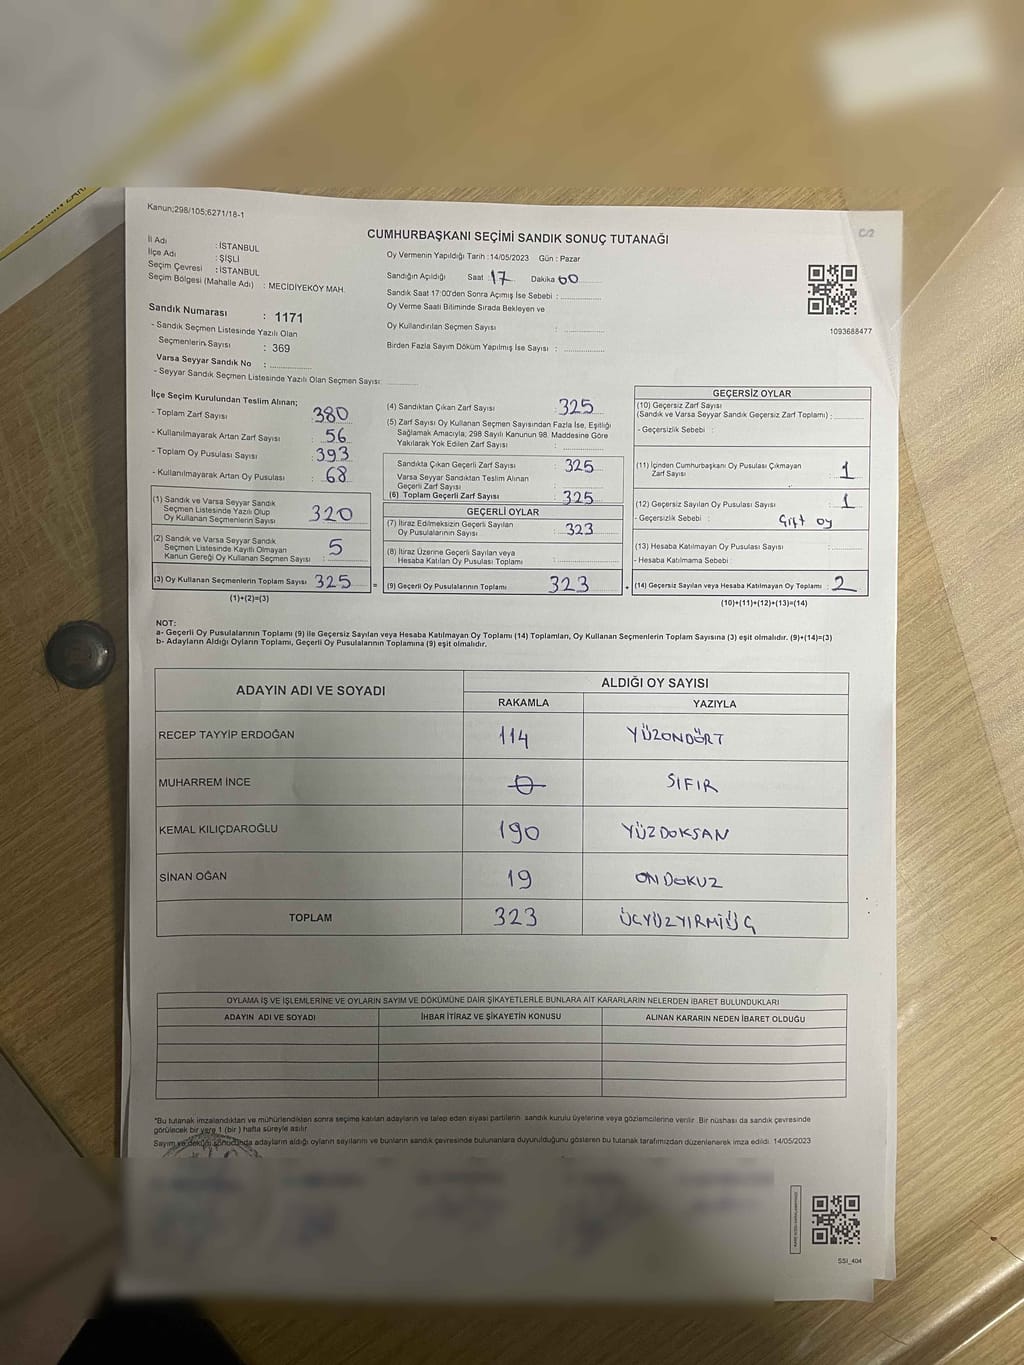 Kanun;298/105;6271/18-1
C/2
CUMHURBAŞKANI SEÇİMİ SANDIK SONUÇ TUTANAĞI
İl Adı : İSTANBUL
İlçe Adı : ŞİŞLİ
Seçim Çevresi : İSTANBUL
Seçim Bölgesi (Mahalle Adı) : MECİDİYEKÖY MAH.
Sandık Numarası : 1171
- Sandık Seçmen Listesinde Yazılı Olan
Seçmenlerin Sayısı : 369
Varsa Seyyar Sandık No :
- Seyyar Sandık Seçmen Listesinde Yazılı Olan Seçmen Sayısı:
Oy Vermenin Yapıldığı Tarih :14/05/2023 Gün : Pazar
Sandığın Açıldığı Saat : 17 Dakika 00
Sandık Saat 17:00'den Sonra Açımış İse Sebebi :
Oy Verme Saati Bitiminde Sırada Bekleyen ve
Oy Kullandırılan Seçmen Sayısı :
Birden Fazla Sayım Döküm Yapılmış İse Sayısı :
1093688477
İlçe Seçim Kurulundan Teslim Alınan;
- Toplam Zarf Sayısı : 380
- Kullanılmayarak Artan Zarf Sayısı : 56
- Toplam Oy Pusulası Sayısı : 393
- Kullanılmayarak Artan Oy Pusulası : 68
(1) Sandık ve Varsa Seyyar Sandık
Seçmen Listesinde Yazılı Olup
Oy Kullanan Seçmenlerin Sayısı : 320
(2) Sandık ve Varsa Seyyar Sandık
Seçmen Listesinde Kayıtlı Olmayan
Kanun Gereği Oy Kullanan Seçmen Sayısı : 5
(3) Oy Kullanan Seçmenlerin Toplam Sayısı : 325 =
(1)+(2)=(3)
(4) Sandıktan Çıkan Zarf Sayısı : 325
(5) Zarf Sayısı Oy Kullanan Seçmen Sayısından Fazla İse, Eşitliği
Sağlamak Amacıyla, 298 Sayılı Kanunun 98. Maddesine Göre
Yakılarak Yok Edilen Zarf Sayısı :
Sandıkta Çıkan Geçerli Zarf Sayısı : 325
Varsa Seyyar Sandıktan Teslim Alınan
Geçerli Zarf Sayısı :
(6) Toplam Geçerli Zarf Sayısı : 325
GEÇERLİ OYLAR
(7) İtiraz Edilmeksizin Geçerli Sayılan
Oy Pusulalarının Sayısı : 323
(8) İtiraz Üzerine Geçerli Sayılan veya
Hesaba Katılan Oy Pusulası Toplamı :
(9) Geçerli Oy Pusulalarının Toplamı : 323 +
GEÇERSİZ OYLAR
(10) Geçersiz Zarf Sayısı
(Sandık ve Varsa Seyyar Sandık Geçersiz Zarf Toplamı) :
- Geçersizlik Sebebi :
(11) İçinden Cumhurbaşkanı Oy Pusulası Çıkmayan
Zarf Sayısı : 1
(12) Geçersiz Sayılan Oy Pusulası Sayısı : 1
- Geçersizlik Sebebi : Çift oy
(13) Hesaba Katılmayan Oy Pusulası Sayısı :
- Hesaba Katılmama Sebebi :
(14) Geçersiz Sayılan veya Hesaba Katılmayan Oy Toplamı : 2
(10)+(11)+(12)+(13)=(14)
NOT:
a- Geçerli Oy Pusulalarının Toplamı (9) ile Geçersiz Sayılan veya Hesaba Katılmayan Oy Toplamı (14) Toplamları, Oy Kullanan Seçmenlerin Toplam Sayısına (3) eşit olmalıdır. (9)+(14)=(3)
b- Adayların Aldığı Oyların Toplamı, Geçerli Oy Pusulalarının Toplamına (9) eşit olmalıdır.
ADAYIN ADI VE SOYADI
ALDIĞI OY SAYISI
RAKAMLA YAZIYLA
RECEP TAYYİP ERDOĞAN 114 YÜZONDÖRT
MUHARREM İNCE 0 SIFIR
KEMAL KILIÇDAROĞLU 190 YÜZDOKSAN
SİNAN OĞAN 19 ONDOKUZ
TOPLAM 323 ÜÇYÜZYİRMİÜÇ
OYLAMA İŞ VE İŞLEMLERİNE VE OYLARIN SAYIM VE DÖKÜMÜNE DAİR ŞİKAYETLERLE BUNLARA AİT KARARLARIN NELERDEN İBARET BULUNDUKLARI
ADAYIN ADI VE SOYADI İHBAR İTİRAZ VE ŞİKAYETİN KONUSU ALINAN KARARIN NEDEN İBARET OLDUĞU
*Bu tutanak imzalandıktan ve mühürlendikten sonra seçime katılan adayların ve talep eden siyasi partilerin sandık kurulu üyelerine veya gözlemcilerine verilir. Bir nüshası da sandık çevresinde
görülecek bir yere 1 (bir) hafta süreyle asılır.
Sayım ve döküm sonucunda adayların aldığı oyların sayılarını ve bunların sandık çevresinde bulunanlara duyurulduğunu gösteren bu tutanak tarafımızdan düzenlenerek imza edildi. 14/05/2023
SSI_404